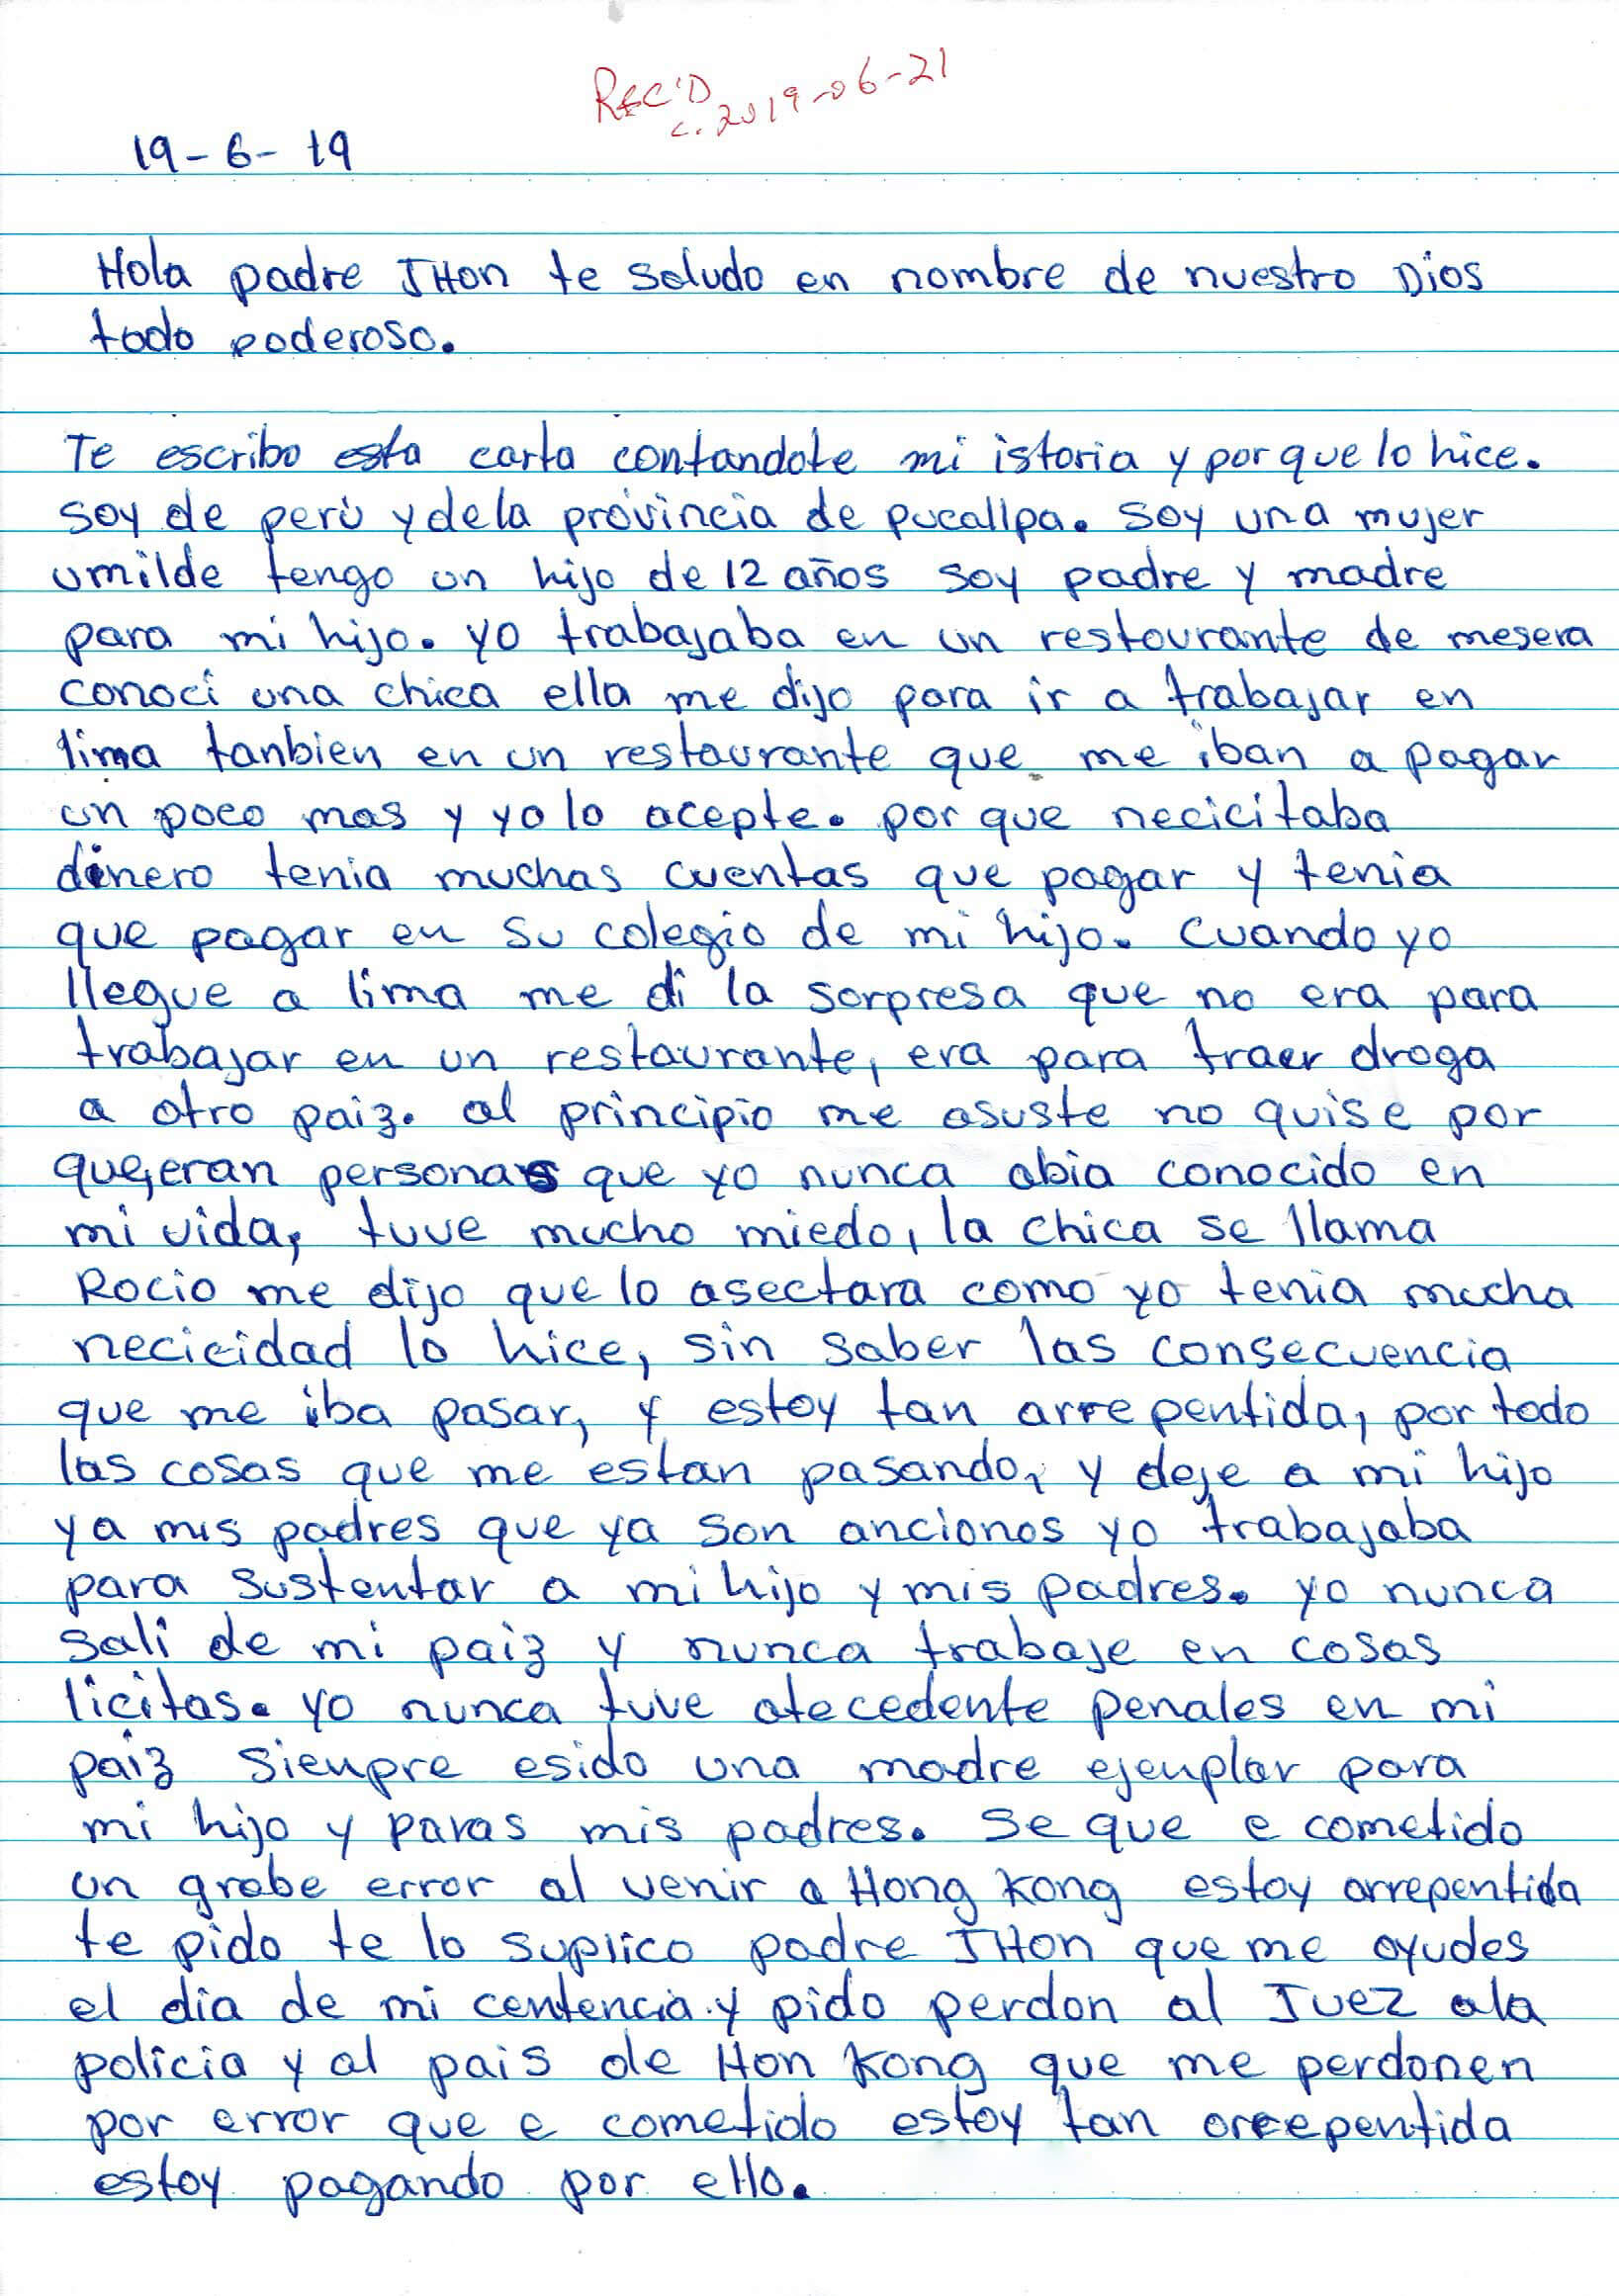 REC'D
c. 2019-06-21
19-6-19
Hola padre JHon te saludo en nombre de nuestro Dios
todo poderoso.
Te escribo esta carta contandote mi istoria y por que lo hice.
soy de perú y de la provincia de pucallpa. soy una mujer
umilde tengo un hijo de 12 años soy padre y madre
para mi hijo. yo trabajaba en un restourante de mesera
conoci una chica ella me dijo para ir a trabajar en
lima tanbien en un restaurante que me iban a pagar
un poco mas y yo lo acepte. por que necicitaba
dinero tenia muchas cuentas que pagar y tenia
que pagar en su colegio de mi hijo. cuando yo
llegue a lima me di la sorpresa que no era para
trabajar en un restaurante, era para traer droga
a otro paiz. al principio me asuste no quise por
que, eran personas que yo nunca abia conocido en
mi vida, tuve mucho miedo, la chica se llama
Rocio me dijo que lo asectara como yo tenia mucha
necicidad lo hice, sin saber las consecuencia
que me iba pasar, y estoy tan arrepentida, por todo
las cosas que me estan pasando, y deje a mi hijo
y a mis padres que ya son ancionos yo trabajaba
para sustentar a mi hijo y mis padres. yo nunca
sali de mi paiz y nunca trabaje en cosas
licitas. yo nunca tuve atecedente penales en mi
paiz sienpre esido una madre ejenplar para
mi hijo y paras mis padres. se que e cometido
un grabe error al venir a Hong kong estoy arrepentida
te pido te lo suplico padre JHon que me ayudes
el dia de mi centencia y pido perdon al Juez ala
policia y al pais de Hon kong que me perdonen
por error que e cometido estoy tan arrepentida
estoy pagando por ello.